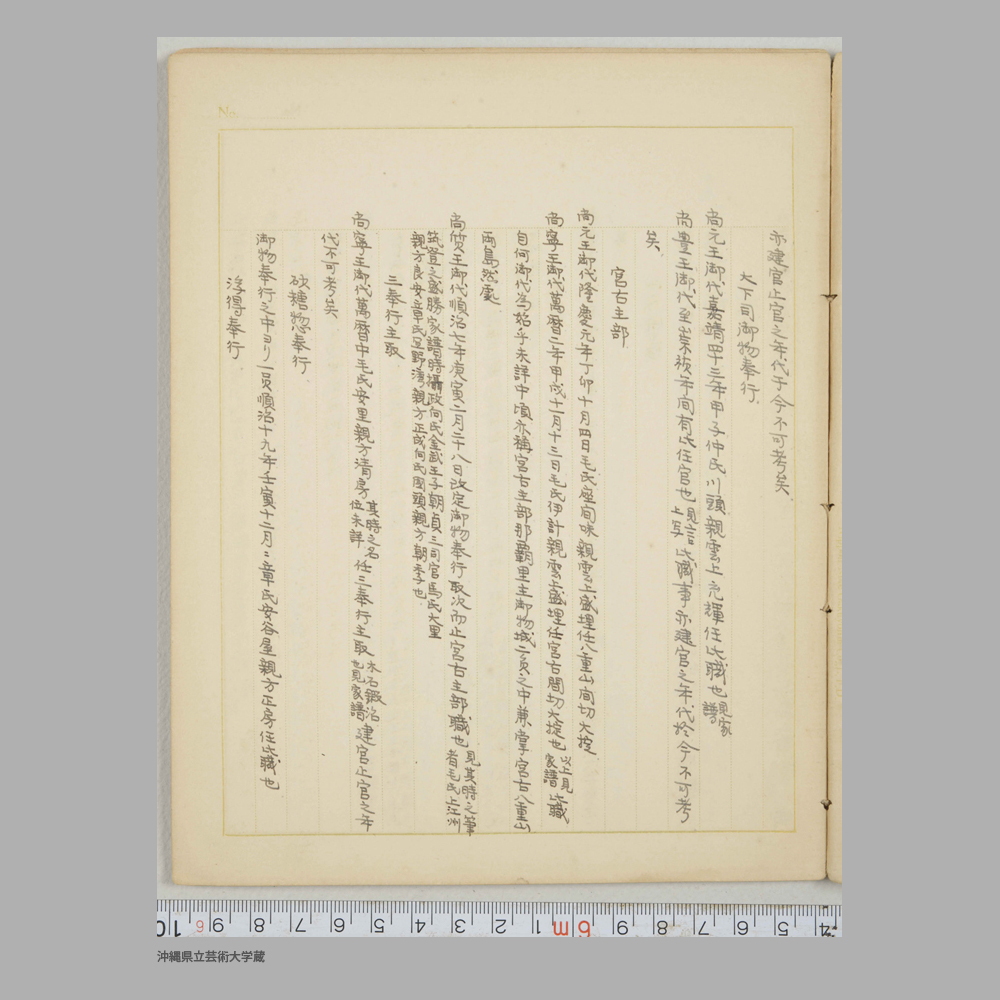 亦建官止官之年代于今不可考矣
大下司御物奉行
尚元王御代嘉靖四十三年甲子仲氏川頭親雲上元輝任此職也見家譜
尚豊王御代至崇禎年間有此任官也見言上写此職事亦建官之年代於今不可考
矣
宮古主部
尚元王御代隆慶元年丁卯十月四日毛氏座間味親雲上盛埋任八重山間切大掟
尚寧王御代萬暦二年甲戌十一月十三日毛氏伊計親雲上盛埋任宮古間切大掟也以上見家譜此職
自何御代為始乎未詳中頃亦稱宮古主部那覇里主御物城二員之中兼掌宮古八重山
両島然處
尚質王御代順治七年庚寅二月二十八日改定御物奉行取次而止宮古主部職也見其時之筆者毛氏上江洲
筑登之盛勝家譜時攝政向氏金武王子朝貞三司官馬氏大里
親方良安章氏宜野湾親方正成向氏国頭親方朝季也
三奉行主取
尚寧王御代萬暦中毛氏安里親方清房其時之名位未詳任三奉行主取木石鍛冶也見家譜建官止官之年
代不可考矣
砂糖惣奉行
御物奉行之中ヨリ一員順治十九年壬寅十二月二章氏安谷屋親方正房任此職也
浮得奉行
No.
10 9 8 7 6 5 4 3 2 1 6m 9 8 7 6 5 4
沖縄県立芸術大学蔵